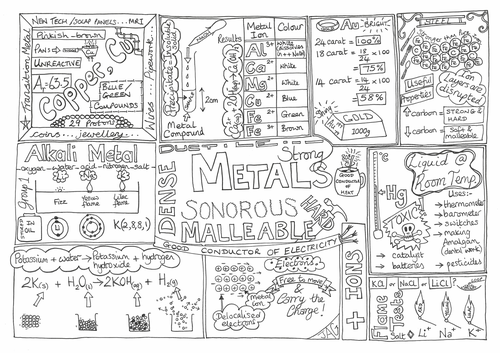 NEW TECH / SOLAR PANELS...MRI
Transition Metal
Pinkish-brown
Pans
UNREACTIVE
Ar 63.5
Copper, Cu
BLUE/
GREEN
COMPOUNDS
29 Protons
coins...jewellery...
Wires...Pipework...
Results
2cm
Metal
Compound
Metal
Ion
Colour
Al 3+
White
Ca 2+
White
Mg 2+
White
Cu 2+
Blue
Fe 2+
Green
Fe 3+
Brown
ALL-BRIGHT
24 carat = 100%
18 carat = 18/24 x 100
= 75%
14 carat = 14/24 x 100
= 58%
GOLD
1000g
STEEL
Harder than Fe
Useful
Properties
Layers are
disrupted
↑ carbon = STRONG &
HARD
↓ carbon = Soft &
malleable
Alkali Metal
oxygen
water
acid
nitrogen
salt
Group 1
Fizz
Yellow
flame
Lilac
flame
STORED
IN
OIL
K(2,8,8,1)
Potassium + water → Potassium + hydrogen
hydroxide
2K(s) + H2O(l) → 2KOH(aq) + H2(g)
DUCTILE
Strong
DENSE
METALS
SONOROUS
HARD
MALLEABLE
GOOD
CONDUCTOR
OF
HEAT
GOOD CONDUCTOR OF ELECTRICITY
Electrons
Free to move
&
Carry the
Charge!
Metal
ion
Delocalised
electrons
+ IONS
°C
Liquid @
Room Temp
Hg
TOXIC
Uses:-
→ thermometer
→ barometer
→ switches
→ making
Amalgam
(dental work)
→ catalyst
→ batteries
→ pesticides
KCl or NaCl or LiCl?
Flame
Tests
Salt
Li+
Na+
K+